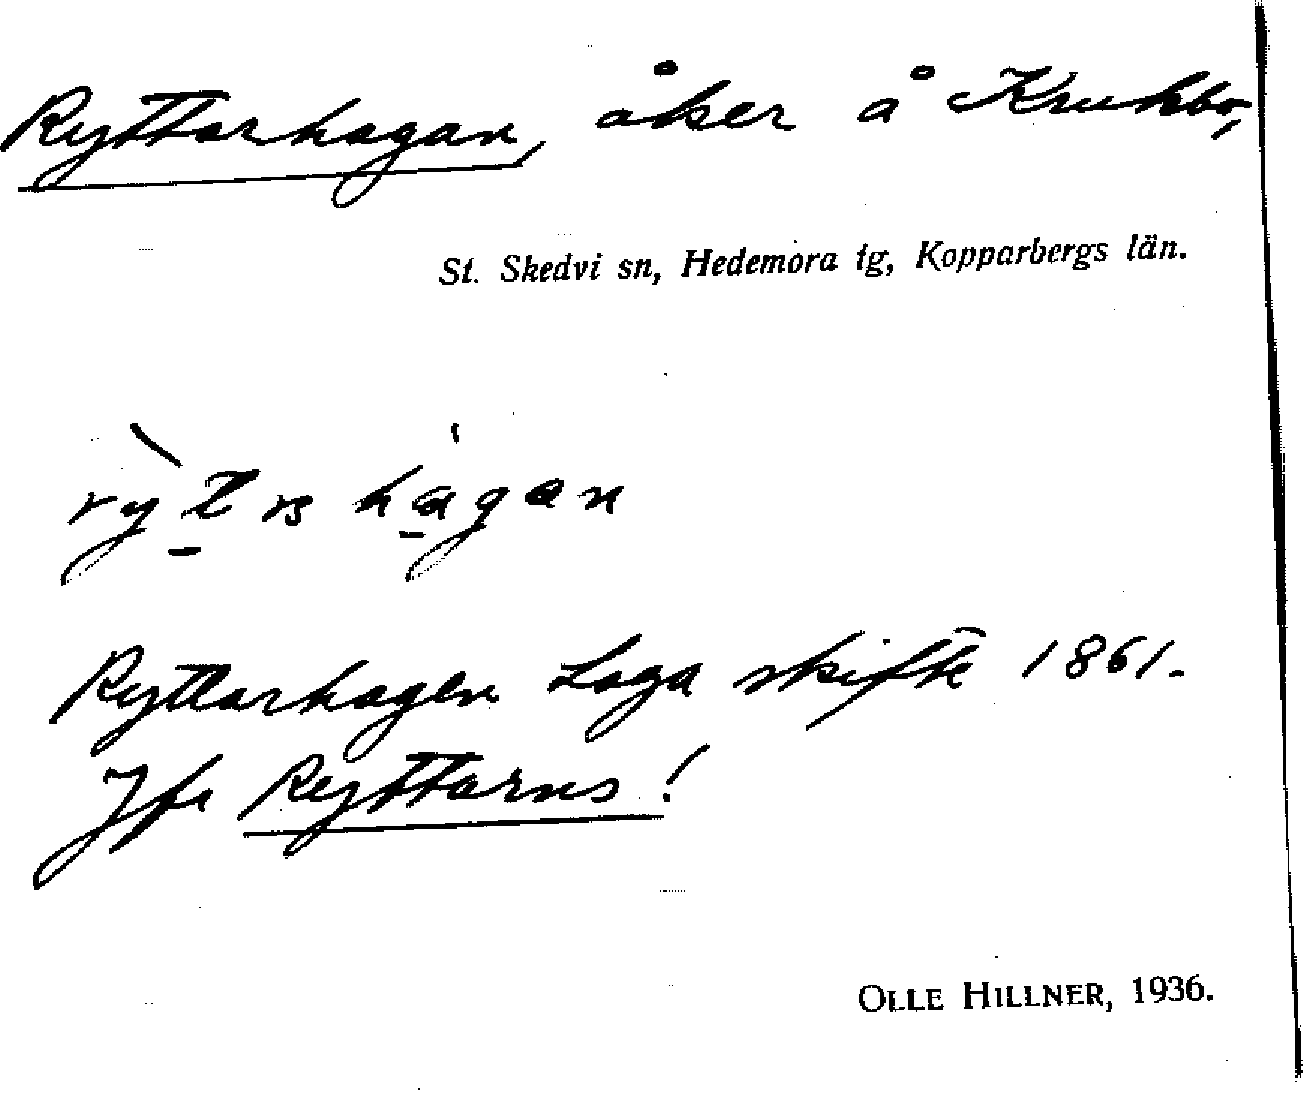 Ryttarhagan, åker å Krukbo,
St. Skedvi sn, Hedemora tg, Kopparbergs län.
Ryttarhagen Laga skifte 1861.
Jfr Ryttarns!
OLLE HILLNER, 1936.